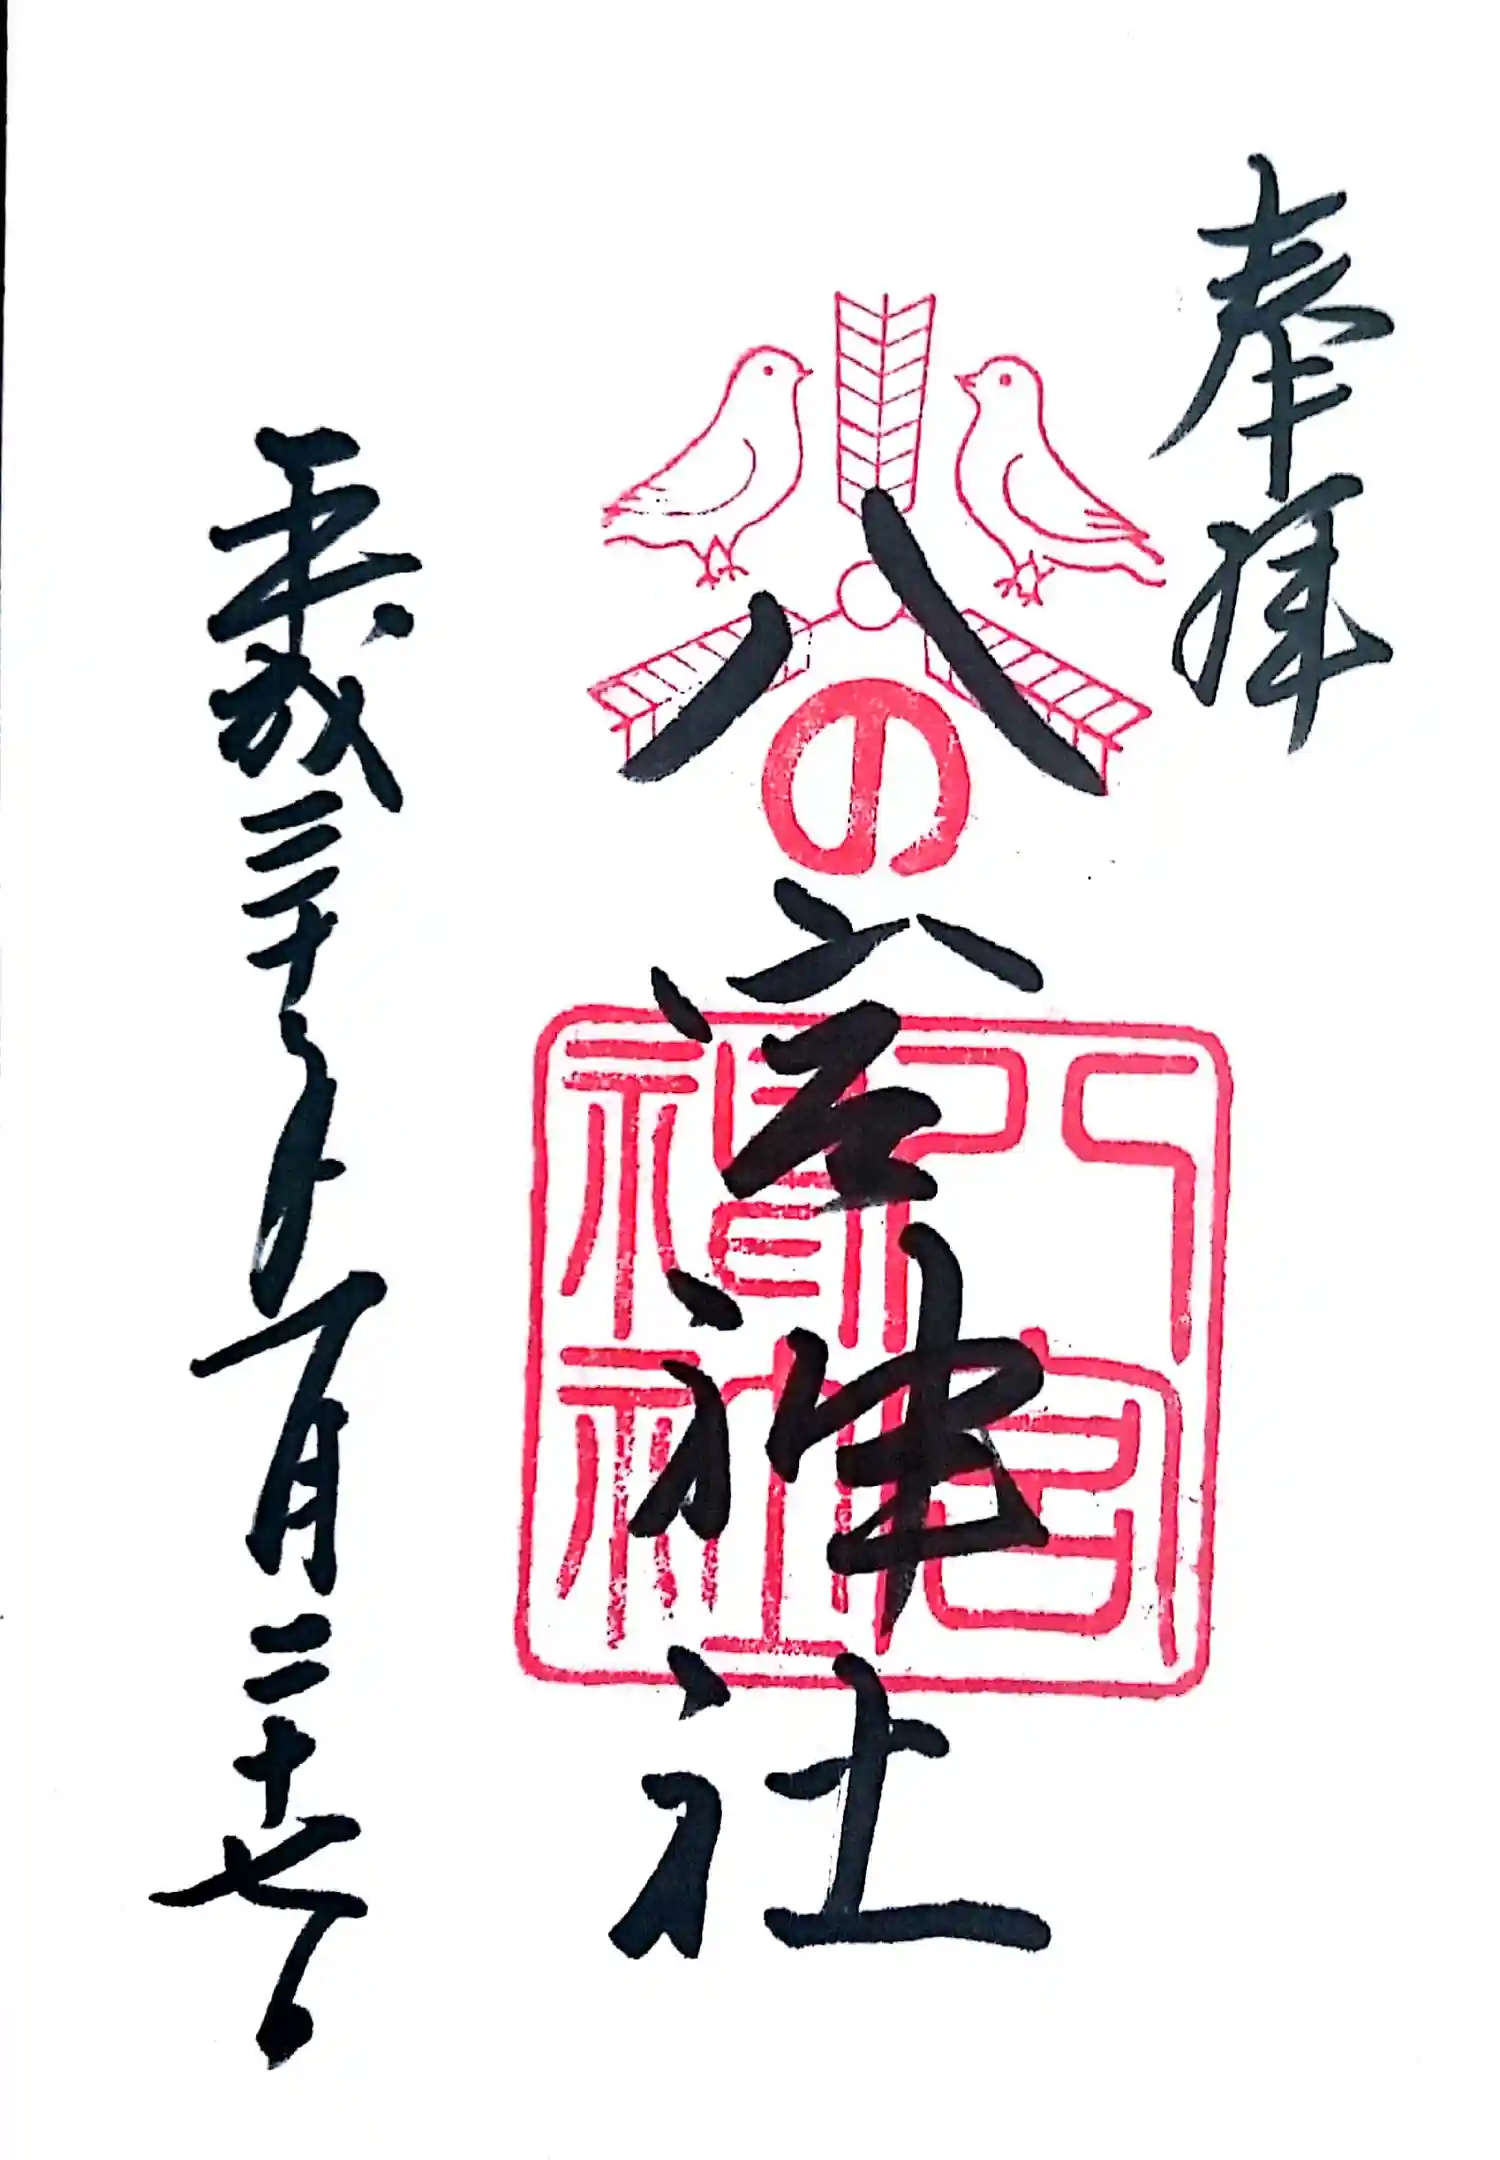 奉拝
八の宮神社
八宮神社
平成三十年一月二十七日